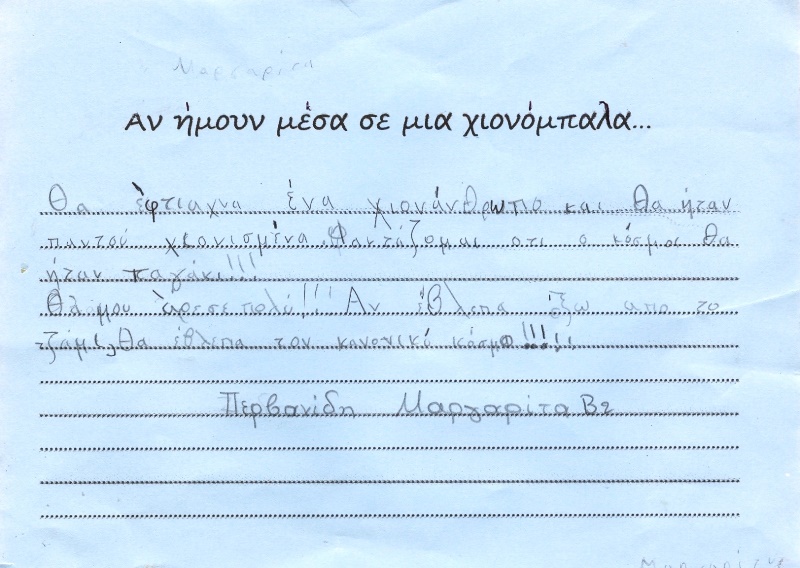 Μαργαρίτα
Αν ήμουν μέσα σε μια χιονόμπαλα...
Θα έφτιαχνα ένα χιονάνθρωπο και θα ήταν
παντού χιονισμένα. Φαντάζομαι οτι ο κόσμος θα
ήταν παγάκι!!!
Θα μου άρεσε πολύ!!! Αν έβλεπα έξω απο το
τζάμι, θα έβλεπα τον κανονικό κόσμο!!!!!
Περβανίδη Μαργαρίτα Β2